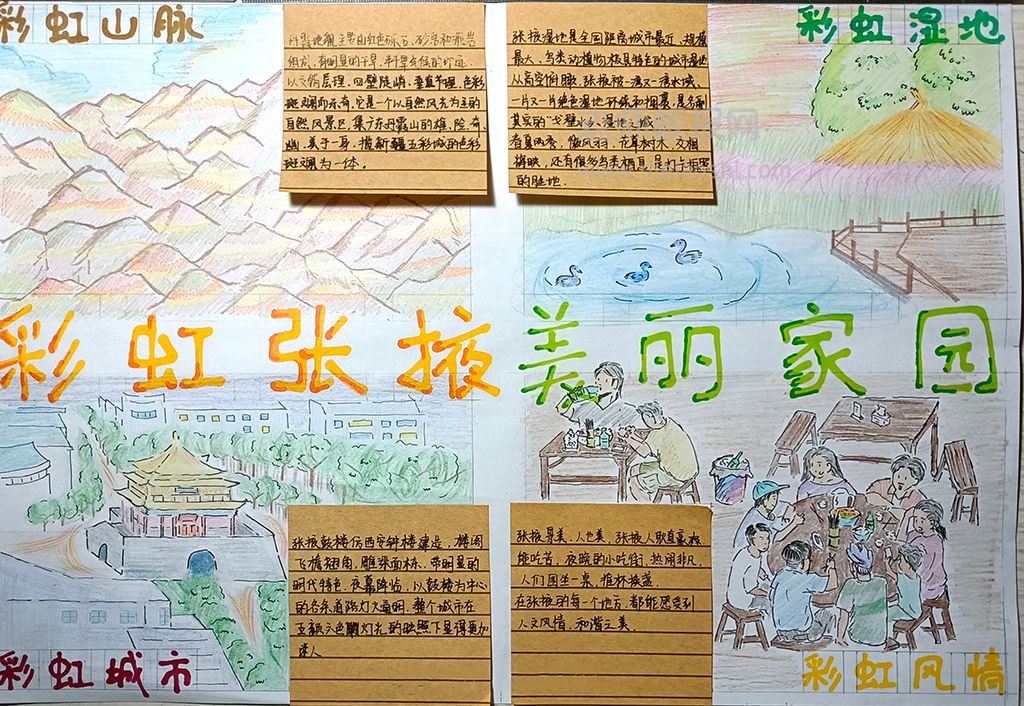 彩虹山脉
彩虹湿地
丹霞地貌主要由红色砾石、砂岩和泥岩
组成,有明显的干旱、半干旱气候的印迹
以交错层理、四壁陡峭、垂直节理、色彩
斑斓而示奇,它是一个以自然风光为主的
自然风景区,集广东丹霞山的雄、险、奇、
幽、美于一身,揽新疆五彩城的色彩
斑斓为一体。
张掖湿地是全国距离城市最近、规模
最大、鸟类动植物极具特色的城市湿地
从高空俯瞰,张掖被一湾又一湾水域、
一片又一片绝色湿地环绕和拥裹,是名副
其实的"戈壁水乡、湿地之城
春夏两季,微风习习,花草树木,交相
辉映,还有很多鸟类栖息,是打卡拍照
的胜地.
彩虹张掖美丽家园
张掖鼓楼仿西安钟楼建造,楼阁
飞檐翘角,雕梁画栋、带明显的
时代特色.夜幕降临,以鼓楼为中心
的各条道路灯火通明,整个城市在
五颜六色的灯光的映照下显得更加
迷人
张掖景美、人也美,张掖人耿直豪爽
能吃苦,夜晚的小吃街,热闹非凡,
人们围坐一桌,推杯换盏
在张掖的每一个地方,都能感受到
人文风情、和谐之美.
彩虹城市
彩虹风情